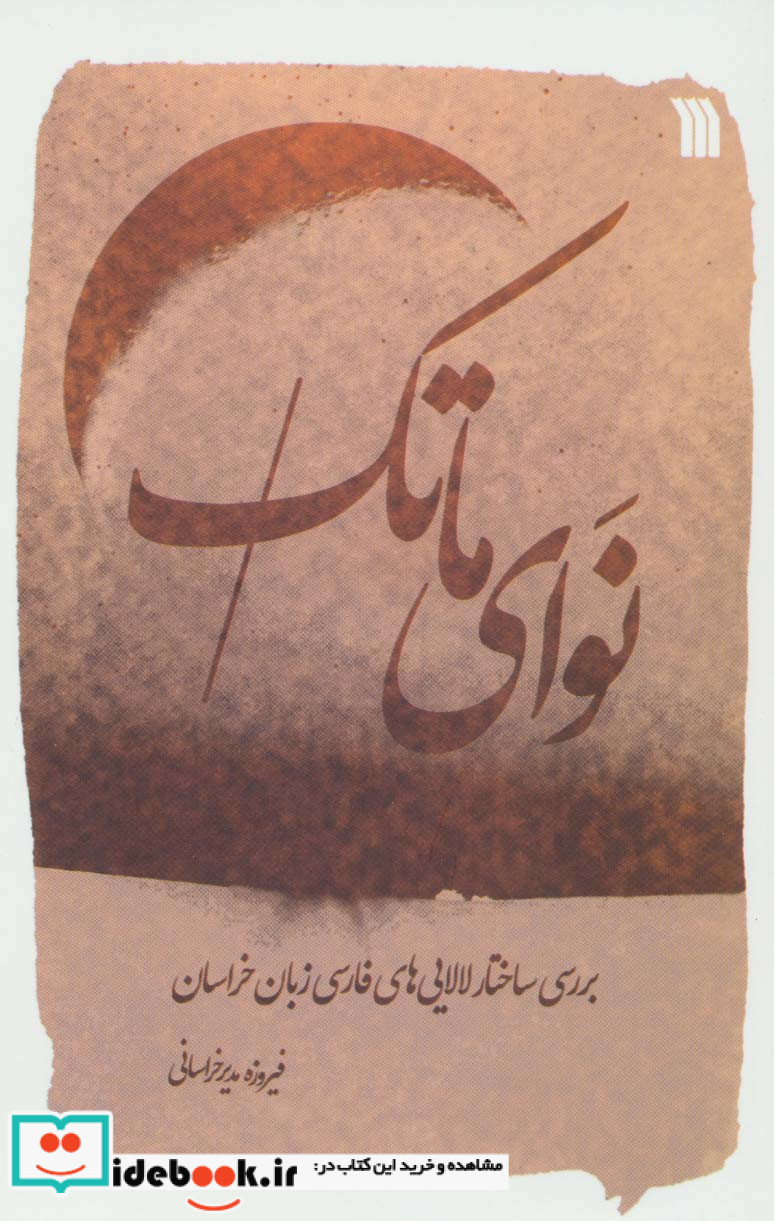 نَوای
ماتک
بررسی ساختار لالایی‌های فارسی زبان خراسان
فیروزه مدیر خراسانی
مشاهده و خرید این کتاب در:
idebook.ir